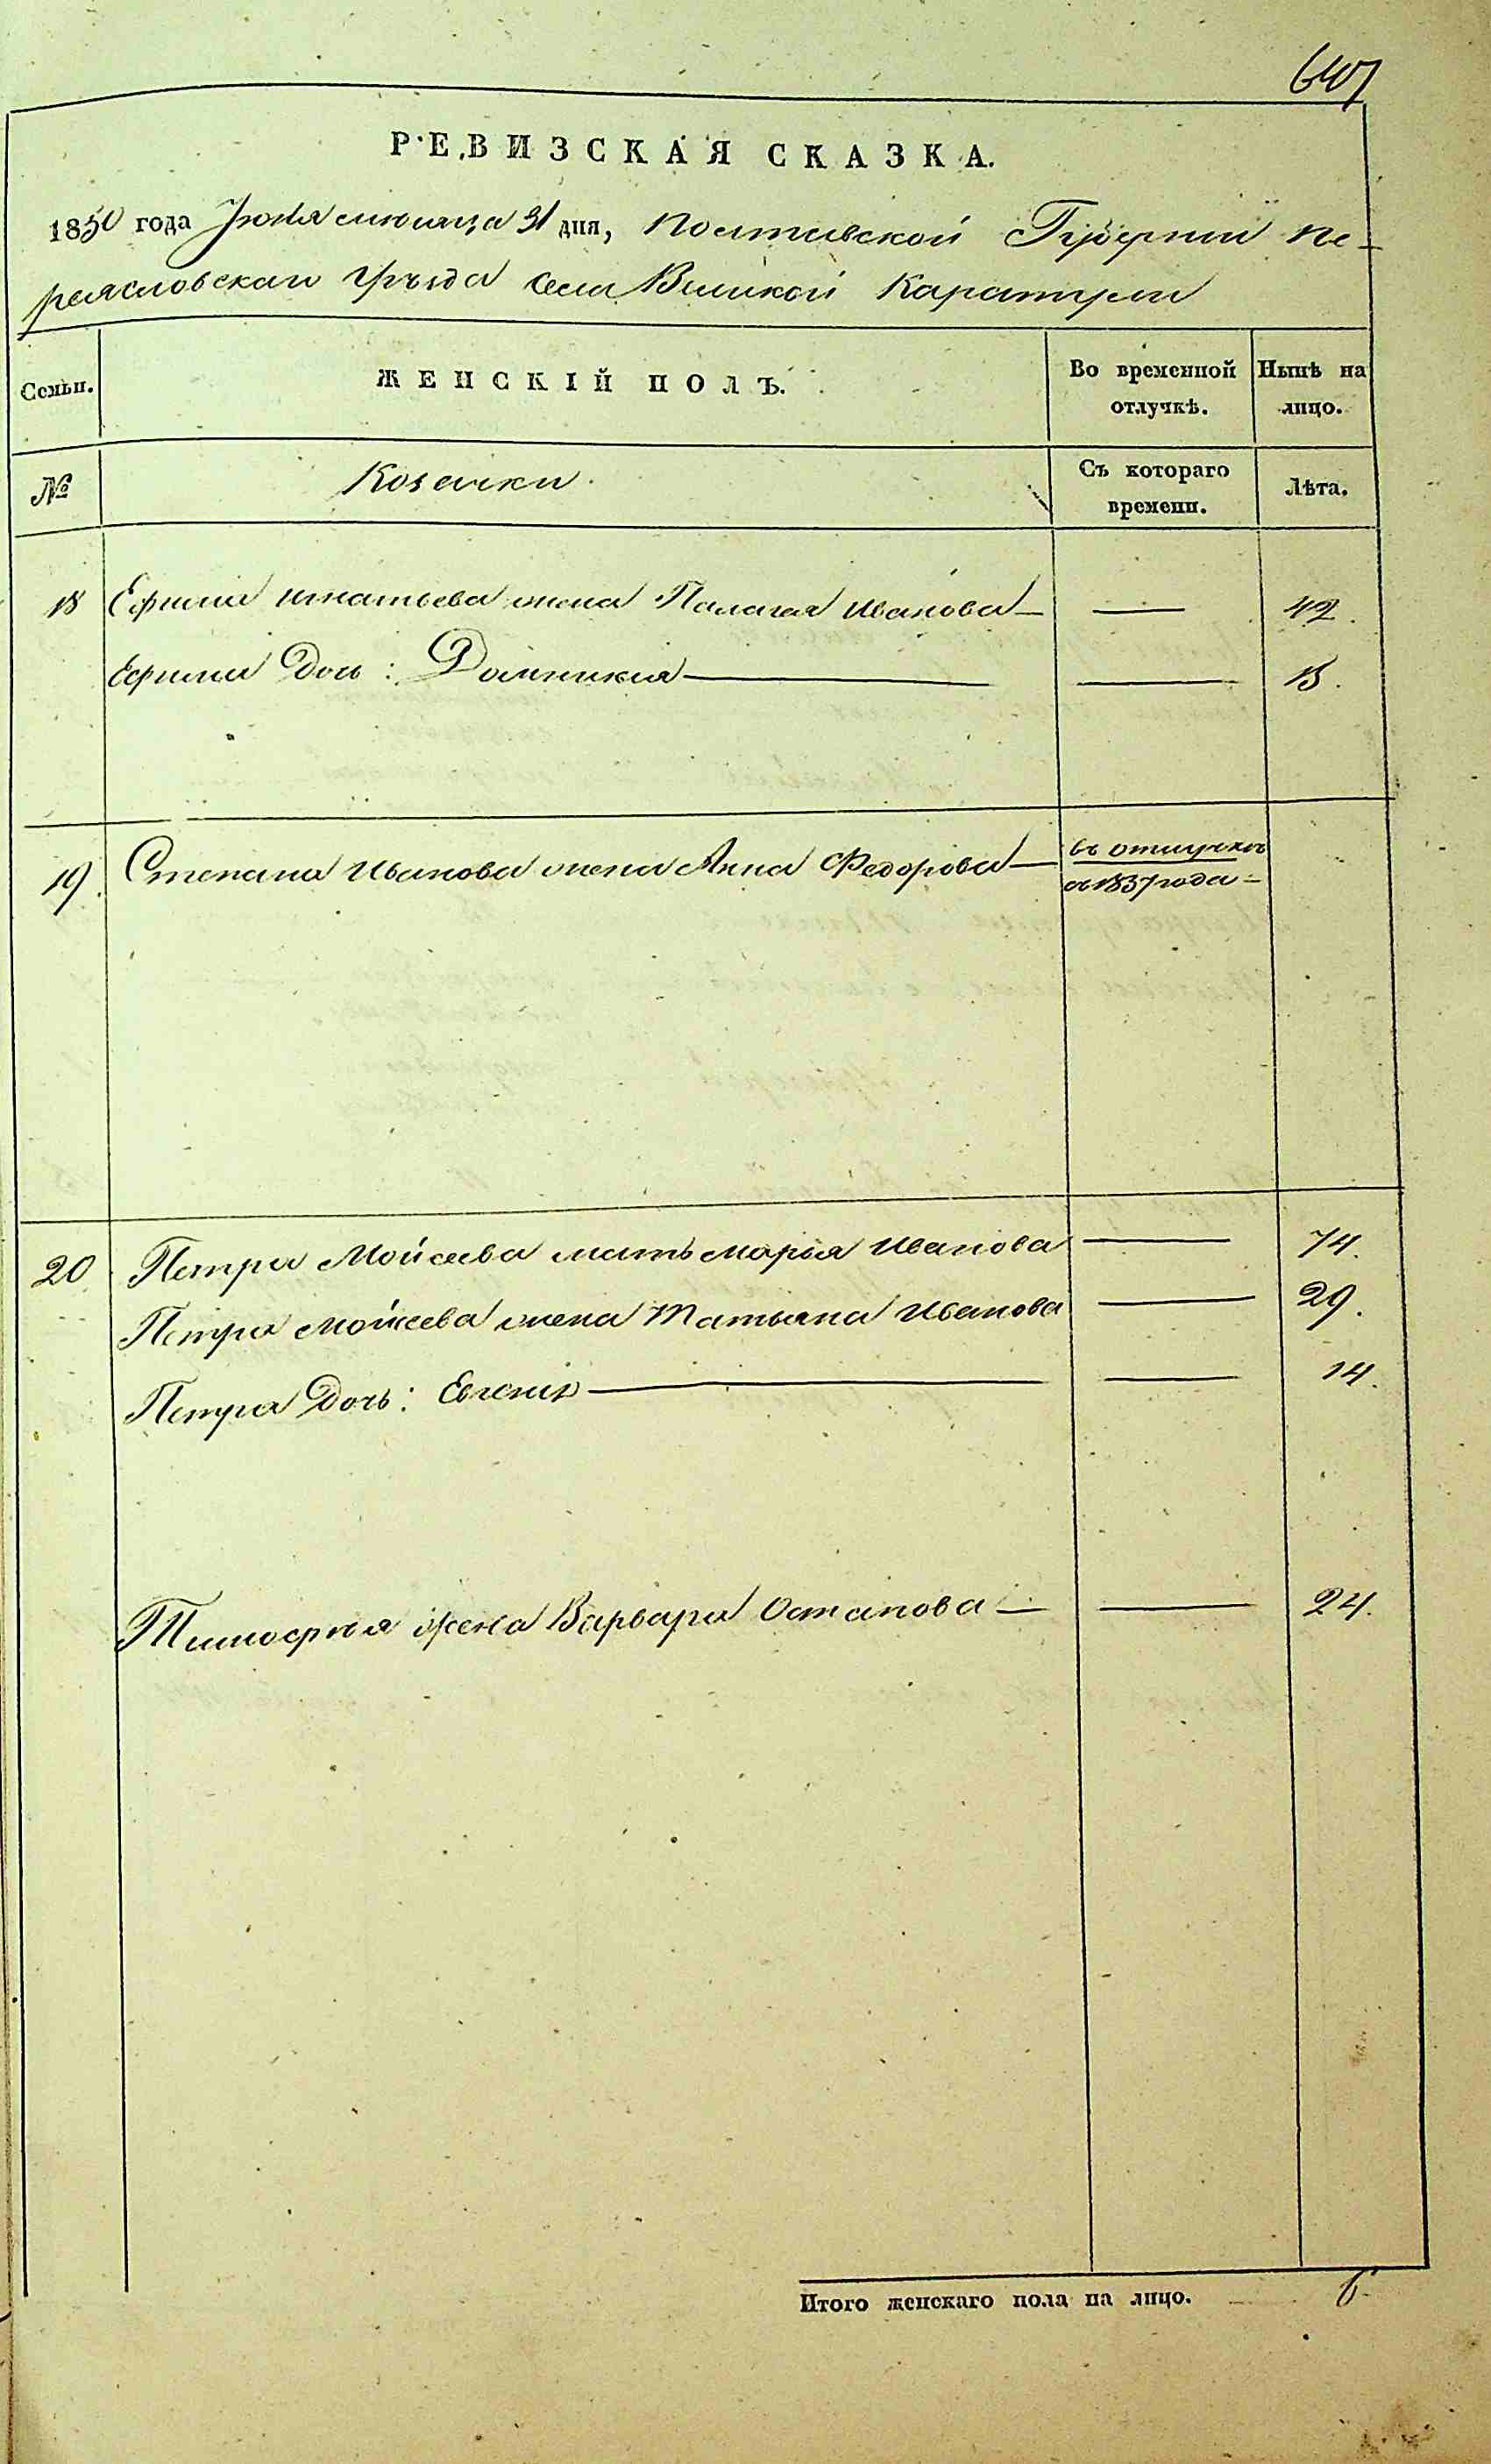 607
РЕВИЗСКАЯ СКАЗКА.
1850 года Июля месяца 31 дня, Полтавской Губернии Пе-
реясловскаго уѣзда села Великой Каратули
Семьи. ЖЕНСКІЙ ПОЛЪ. Во временной отлучкѣ. Нынѣ на лицо.
№ Козачки. Съ котораго времени. Лѣта.
18 Ефима Игнатьева жена Палагея Иванова — — 42.
Ефима Дочь: Домникия — — 15.
19. Степана Иванова жена Анна Федорова — въ отлучкѣ
съ 1837 года —
20 Петра Мойсеева мать Марья Иванова — 74.
Петра Мойсеева жена Татьяна Иванова — 29.
Петра Дочь: Евгения — — 14.
Тимофея жена Варвара Остапова — — 24.
Итого женскаго пола на лицо. 6